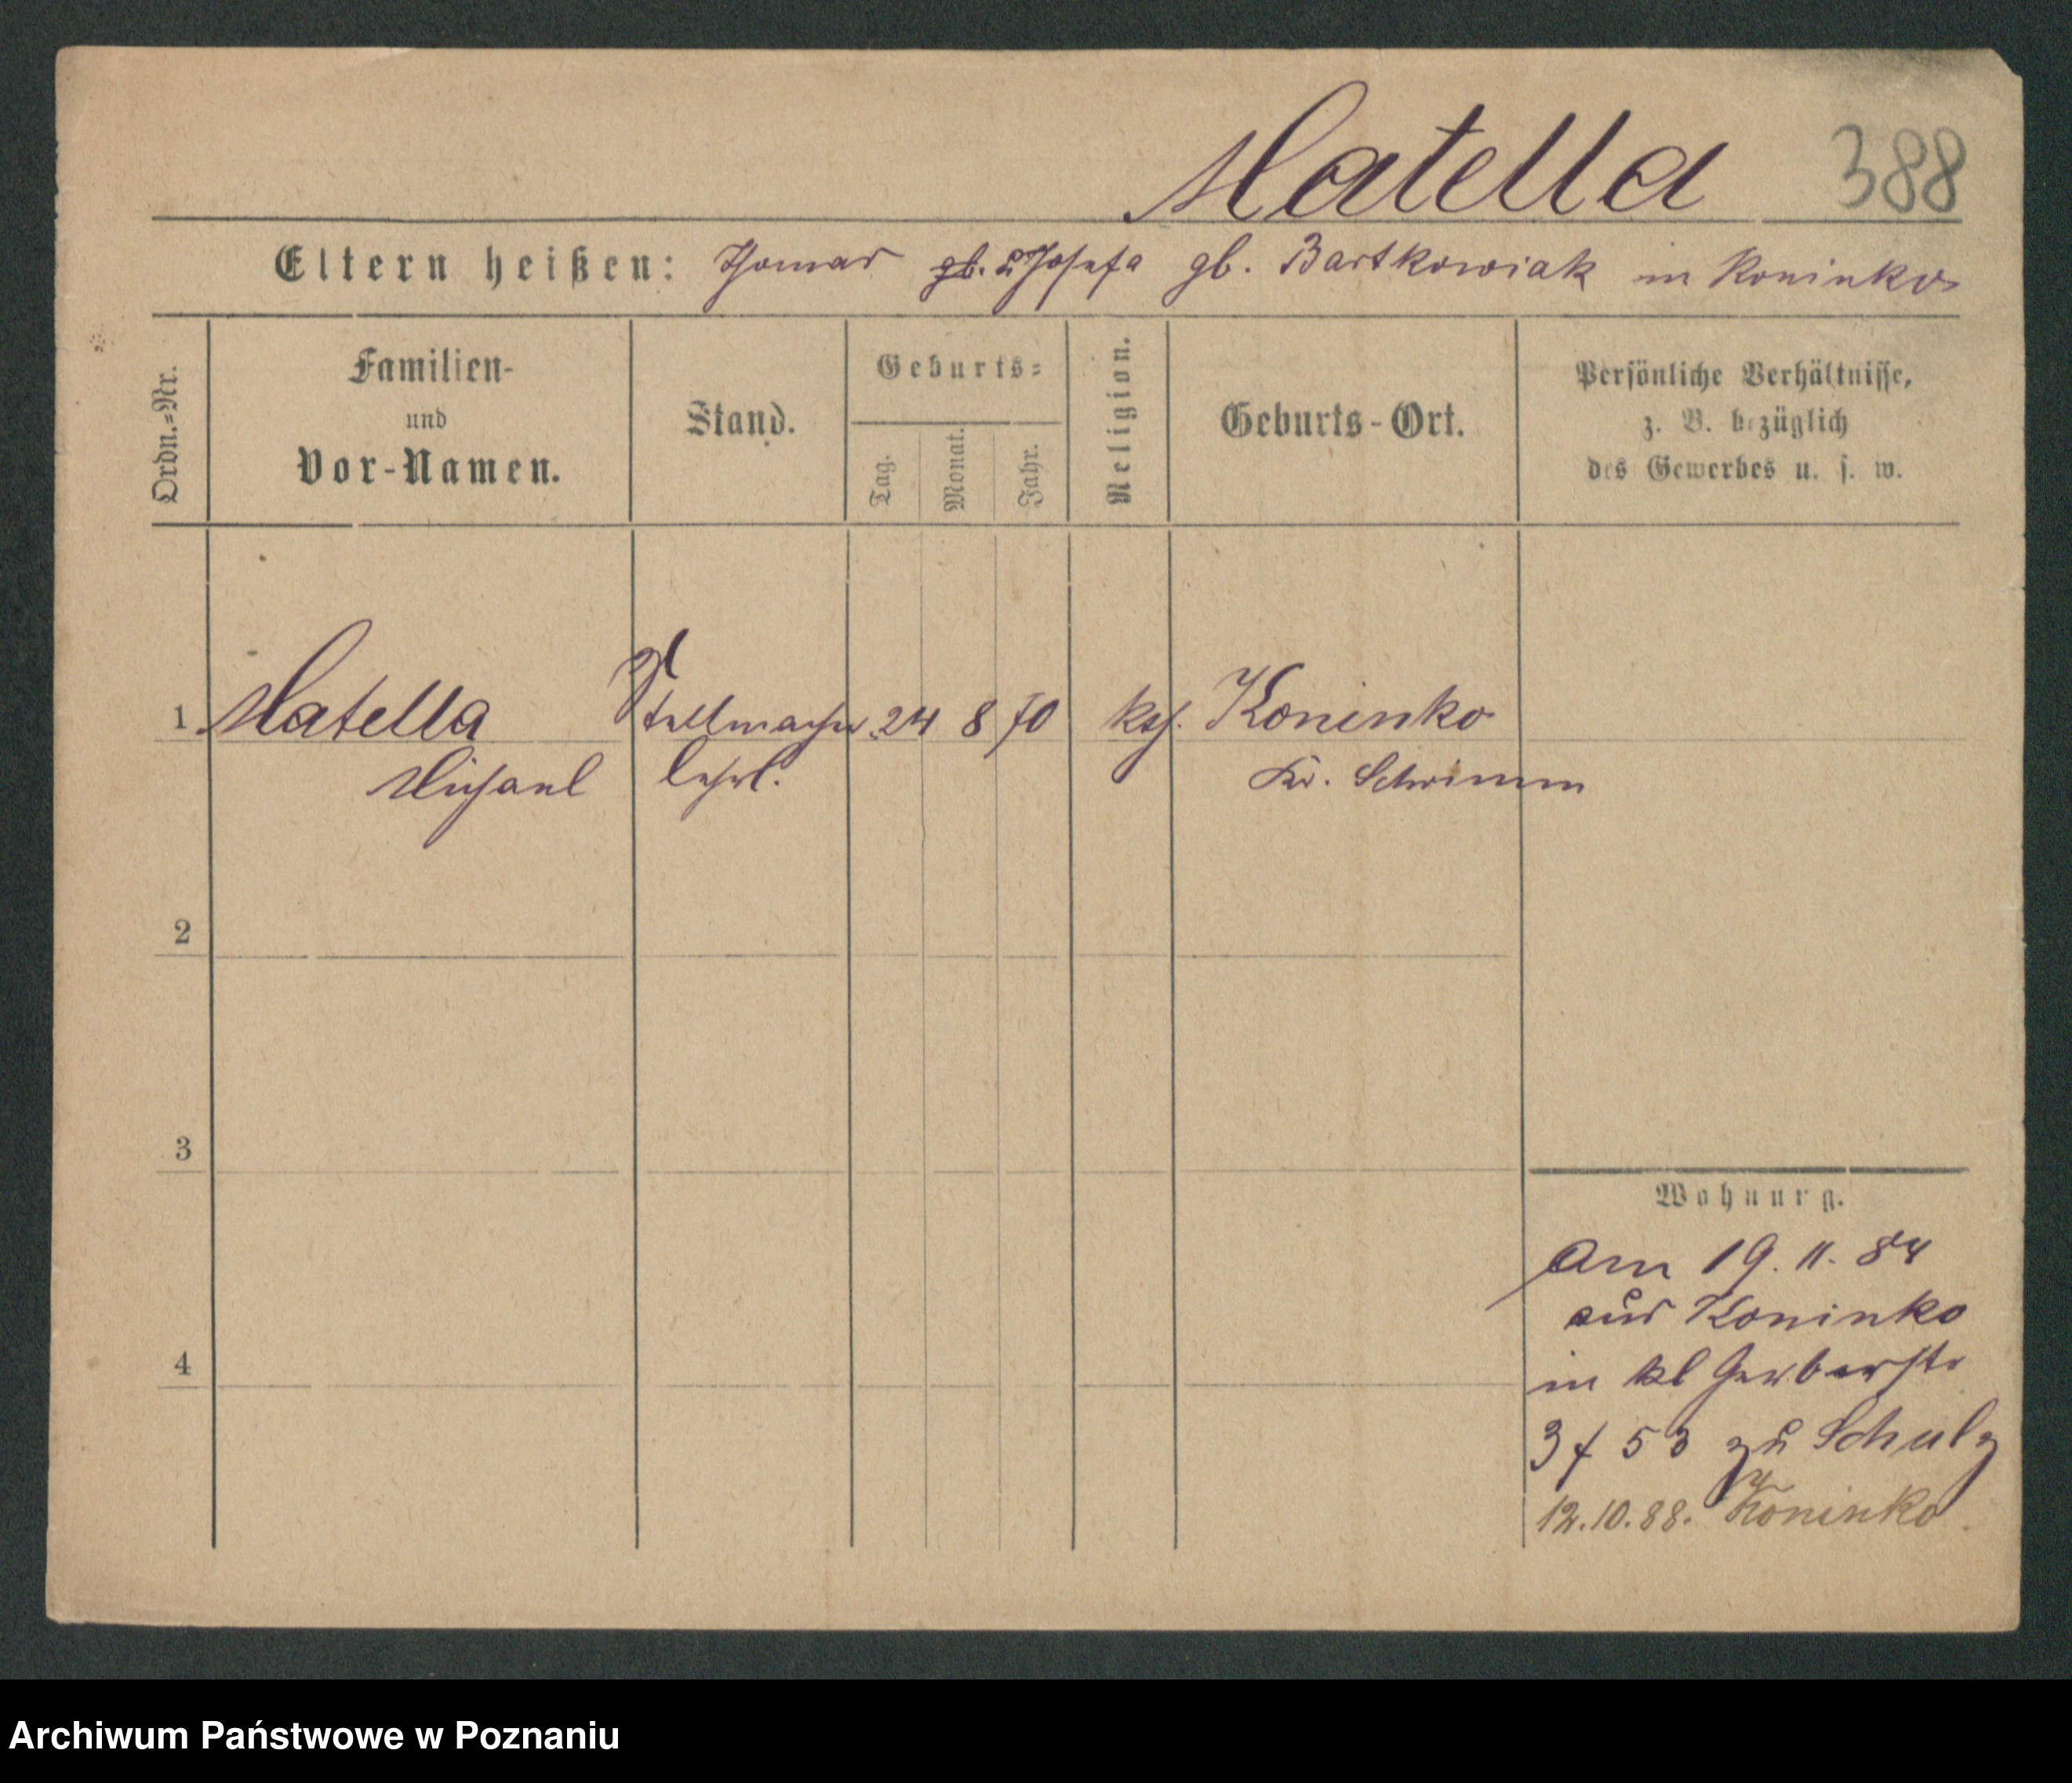 Matella 388
Eltern heißen: Thomas gb. u Josefa gb. Bartkowiak in Koninko
Ordn.=Nr.
Familien-
und
Vor-Namen.
Stand.
Geburts=
Tag.
Monat.
Jahr.
Religion.
Geburts-Ort.
Persönliche Verhältnisse,
z. B. bezüglich
des Gewerbes u. s. w.
1. Matella Stellmacher 24 8 70 kth. Koninko
Michael Lehrl. Kr. Schrimm
2
3
4
Wohnung.
Am 19. 11. 84
aus Koninko
in kl Gerberstr
3 f 53 zu Schulz
12.10.88. Koninko
Archiwum Państwowe w Poznaniu